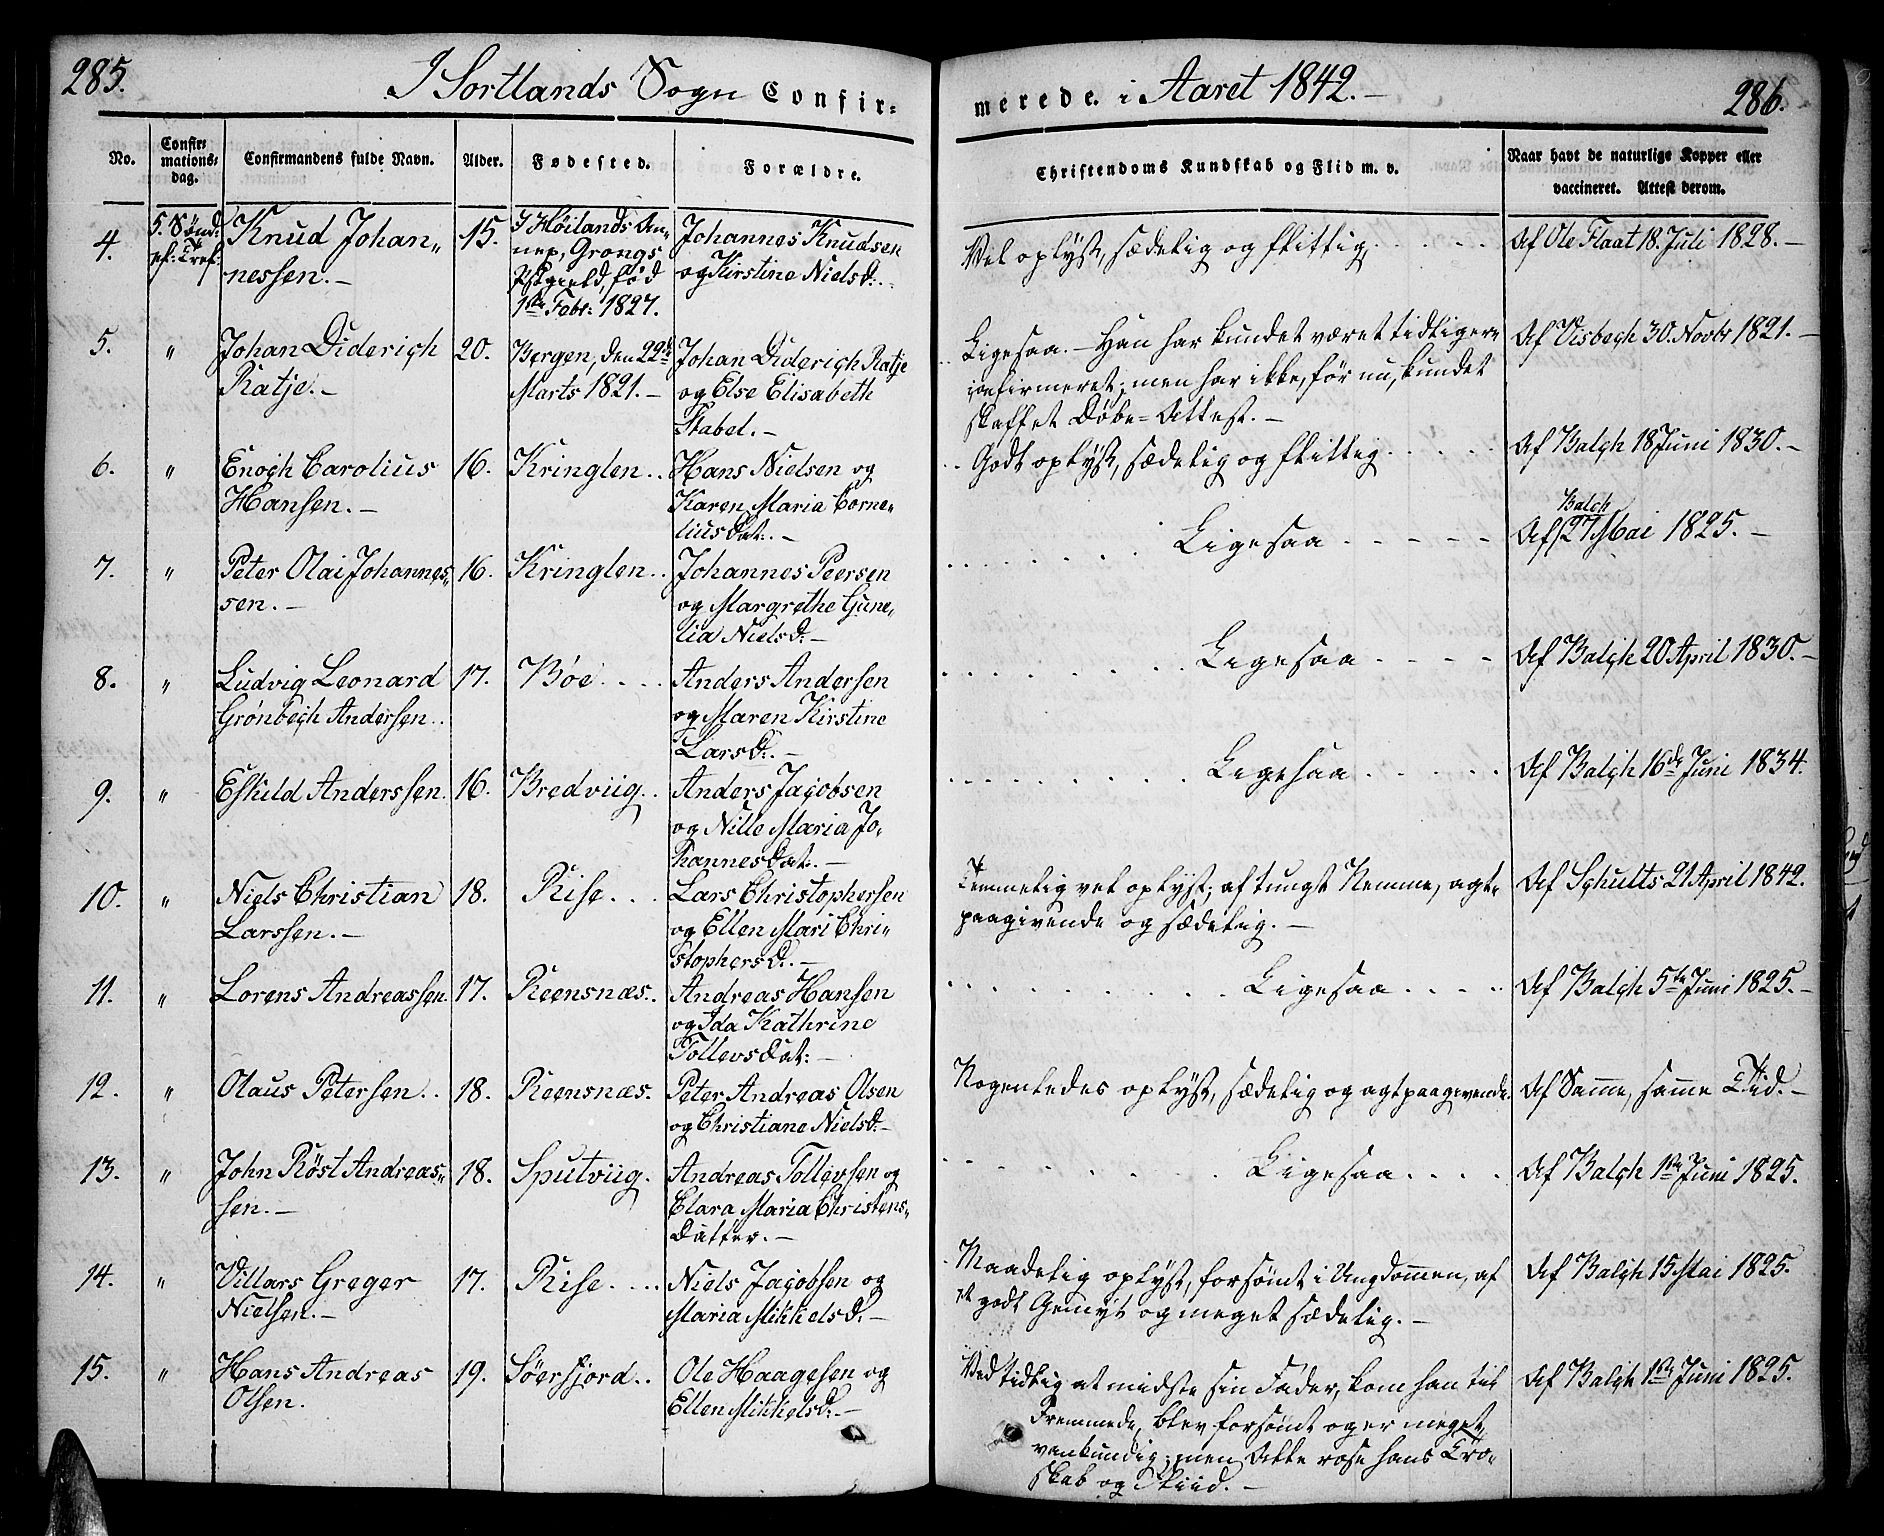 285.
I Sortlands Sogn Confir-
merede. i Aaret 1842.-
286.
No.
Confir-
mations-
dag.
Confirmandens fulde Navn.
Alder.
Fødested.
Forældre.
Christendoms Kundskab og Flid m. v.
Naar havt de naturlige Kopper eller
vaccineret. Attest derom.
4.
5. Sønd:
ef: Tref:
Knud Johan„
nessen.-
15.
I Høilands An„
nex, Grongs
Pstgield, fød
1ste Febr: 1827.
Johannes Knudsen
og Kirstine Nielsd:.
Vel oplyst, sædelig og flittig.
Af Ole Flaat 18. Juli 1828.-
5.
„
Johan Diderich
Ratje.-
20.
Bergen, den 22de
Marts 1821.-
Johan Diderich Ratje
og Else Elisabeth
Stabel.-
Ligesaa.- Han har kundet været tidligere
confirmeret; men har ikke, før nu, kundet
skaffet Døbe-Attest.-
Af Visbech 30. Novbr 1821.-
6.
„
Enoch Carolius
Hansen.-
16.
Kringlen..
Hans Nielsen og
Karen Maria Corne„
liusdat:.-
Godt oplyst, sædelig og flittig.
Af Balch 18 Juni 1830.-
7.
„
Peter Olai Johannes„
sen.-
16.
Kringlen..
Johannes Peersen
og Margrethe Gune„
lia Nielsd:-
Ligesaa
Balch
Af 27 Mai 1825.-
8.
„
Ludvig Leonard
Grønbech Andersen..
17.
Bøe....
Anders Andersen
og Maren Kirstine
Larsd:.-
Ligesaa
Af Balch 20 April 1830.-
9.
„
Eskild Anderssen.
16.
Bredviig..
Anders Jacobsen
og Nille Maria Jo„
hannesdat:.-
Ligesaa
Af Balch 16de Juni 1834.
10.
„
Niels Christian
Larssen.-
18.
Rise...
Lars Christophersen
og Ellen Mari Chri„
stophersd:.-
Temmelig vel oplyst; af tungt Nemme, agt„
paagivende og sædelig.-
Af Schults 21 April 1842.
11.
„
Lorens Andreassen.
17.
Reensnæs..
Andreas Hansen
og Ida Kathrine
Tollevsdat:-
Ligesaa
Af Balch 5te Juni 1825.-
12.
„
Olaus Petersen..
18.
Reensnæs.
Peter Andreas Olsen
og Christiane Nielsd:-
Nogenledes oplyst, sædelig og agtpaagivende.
Af Samme, samme Tid.-
13.
„
John Røst Andreas„
sen.-
18.
Sputviig.
Andreas Tollevsen og
Clara Maria Christens„
datter.-
Ligesaa
Af Balch 1ste Juni 1825.
14.
„
Villars Greger
Nielsen.-
17.
Rise....
Niels Jacobsen og
Maria Mikkelsd:-
Maadelig oplyst, forsømt i Ungdommen, af
et godt Gemyt og meget sædelig.-
Af Balch 15 Mai 1825.
15.
„
Hans Andreas
Olsen.
19.
Søerfjord..
Ole Haagesen og
Ellen Mikkelsd:-
Ved tidlig at midste sin Fader, kom han til
Fremmede, blev forsømt og er meget
vankundig; men Alle rose hans Tro„
skab og Fliid.-
Af Balch 1ste Juni 1825.